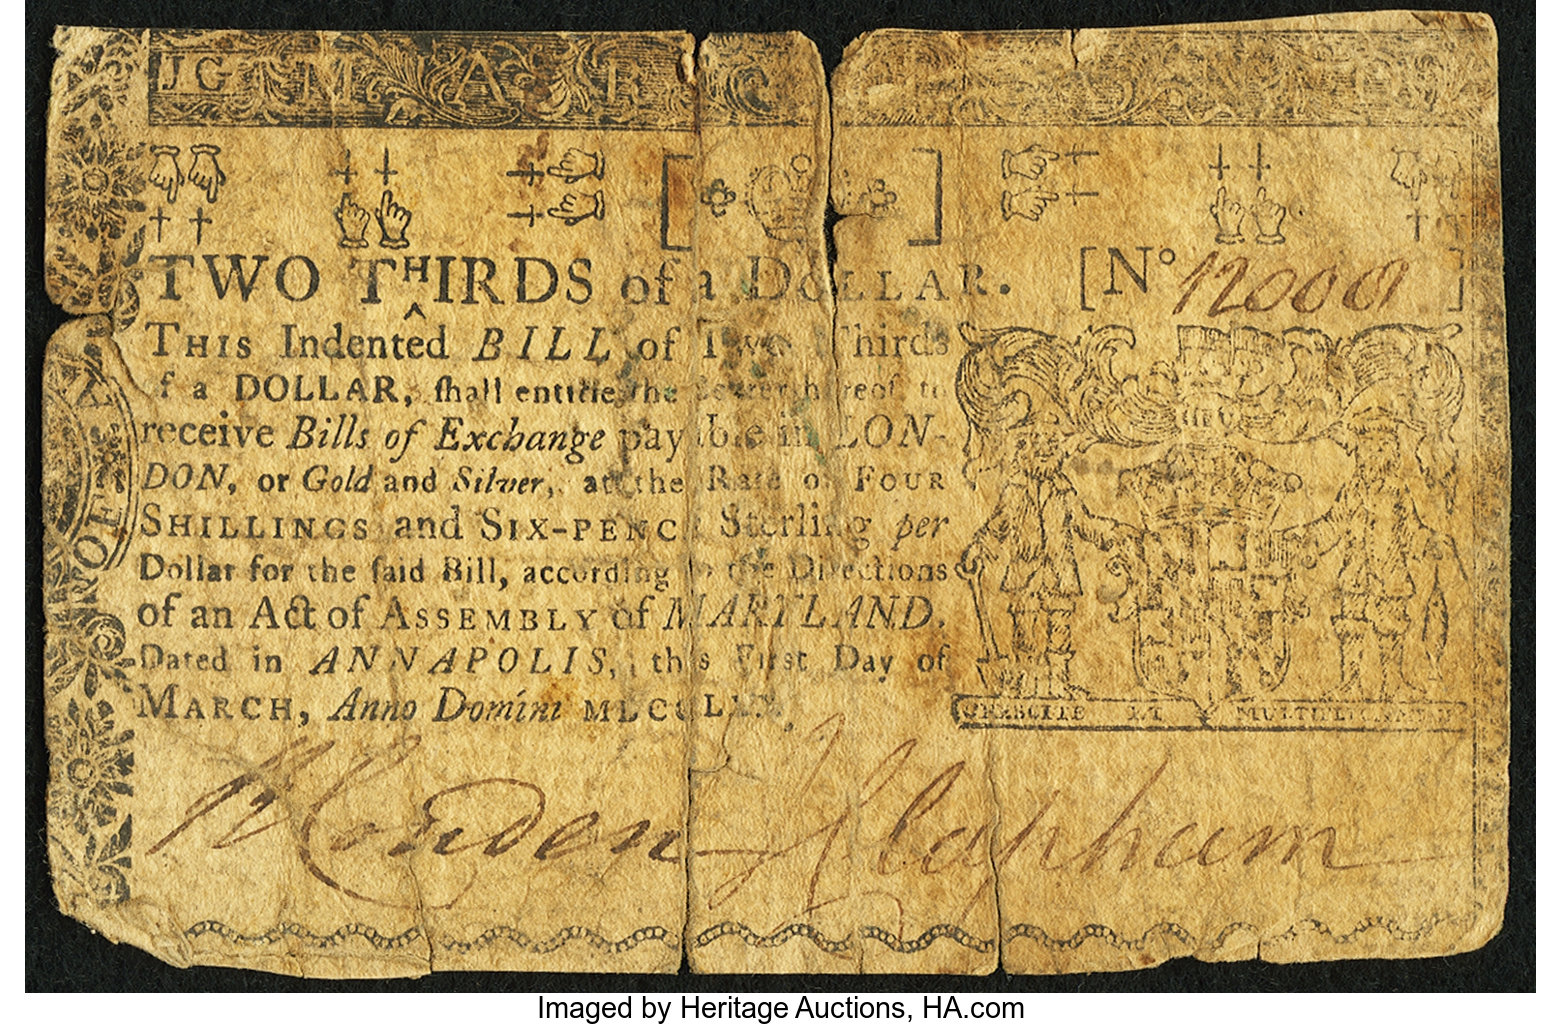 JG M A R
TWO THIRDS of a DOLLAR. [No 12000]
THIS Indented BILL of Two Thirds
of a DOLLAR, ſhall entitle the Bearer hereof to
receive Bills of Exchange payable in LON-
DON, or Gold and Silver, at the Rate of FOUR
SHILLINGS and SIX-PENCE Sterling per
Dollar for the ſaid Bill, according to the Directions
of an Act of ASSEMBLY of MARYLAND.
Dated in ANNAPOLIS, this Firſt Day of
MARCH, Anno Domini
CRESCITE ET MULTIPLICAMINI
Clapham
Imaged by Heritage Auctions, HA.com